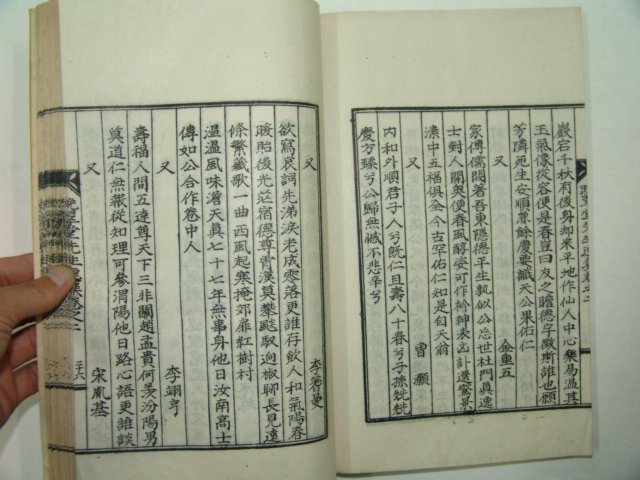 巖宕千秋有後身却來平地作仙人中心樂易溫其
玉氣像從容便是春豈曰友之瞻德宇微斯誰也傾
芳隣死生安順餘慶要識天公果佑仁
金重五
家傳儒閥著吾東隱德平生孰似公忘世杜門眞逸
士對人開奧便春風醇姿可作衿紳表
濃中五福俱全今古罕佑仁知是自天翁
又
曺灝
內和外順君子人兮旣仁且壽八十春兮子孫兟兟
慶方臻兮公歸無憾不悲辛兮
又
李壽曼
欲寫哀詞先涕淚老成零落更誰存飮人和氣陽春
暖貽後光莊宿德尊霄漢莫攀飈馭逈椒聊長見遠
條繁薤歌一曲西風起寒掩郊扉紅樹村
又
李翊亨
溫溫風味澹天眞七十七年無事身他日汝南高士
傳如公合作卷中人
又
宋胤基
壽福人間五達尊天下三非關趙孟貴何羨汾陽男
奠道仁無報從知理可參渭陽他日路心語更誰談